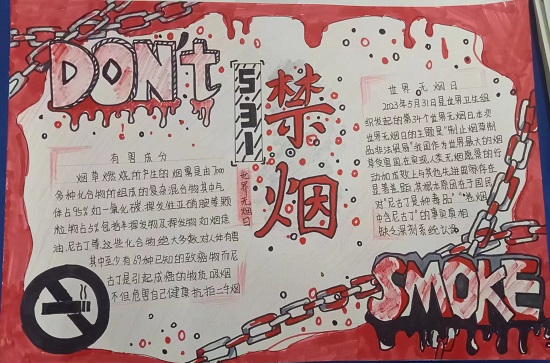 DON't
5.31
世界无烟日
禁烟
有害成分
烟草燃烧所产生的烟雾是由7000
多种化合物的组成的复杂混合物其中气
体占95%如一氧化碳.挥发性亚硝胺等颗
粒物占5%包括半挥发物及挥发物如烟焦
油,尼古丁等.这些化合物绝大多数对人体有害
其中至少有69种已知的致癌物而尼
古丁是引起成瘾的物质吸烟
不但危害自己健康抗拒二手烟
世界无烟日
2023年5月31日是世界卫生组
织发起的第36个世界无烟日本次
世界无烟日的主题是"制止烟草制
品非法贸易"我国作为世界最大的烟
草受害国在实现人类无烟愿景的行
动加成效上与其他先进国家存在
显著差距.其根本原因在于国民
对"尼古丁是种毒品""卷烟
中含尼古丁"的事实真相
缺乏深刻系统认识
SMOKE